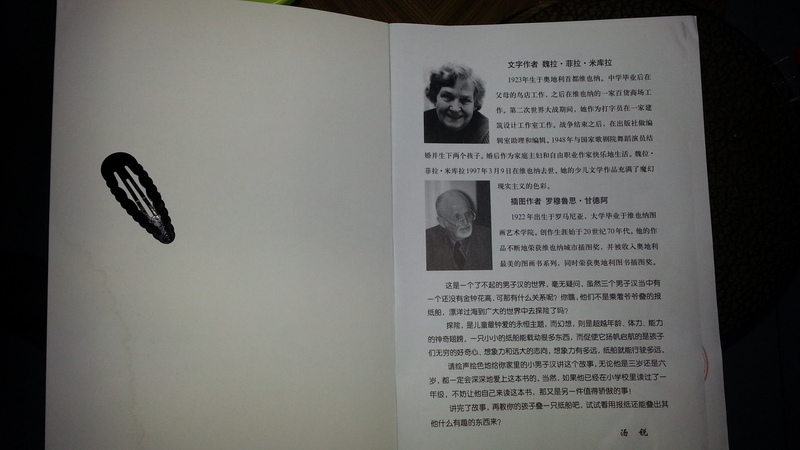 文字作者 魏拉·菲拉·米库拉
1923年生于奥地利首都维也纳。中学毕业后在
父母的鸟店工作，之后在维也纳的一家百货商场工
作。第二次世界大战期间，她作为打字员在一家建
筑设计工作室工作。战争结束之后，在出版社做编
辑室助理和编辑。1948年与国家歌剧院舞蹈演员结
婚并生下两个孩子。婚后作为家庭主妇和自由职业作家快乐地生活。魏拉·
菲拉·米库拉1997年3月9日在维也纳去世。她的少儿文学作品充满了魔幻
现实主义的色彩。
插图作者 罗穆鲁思·甘德阿
1922年出生于罗马尼亚，大学毕业于维也纳图
画艺术学院。创作生涯始于20世纪70年代。他的作
品不断地荣获维也纳城市插图奖，并被收入奥地利
最美的图画书系列，同时荣获奥地利图书插图奖。
这是一个了不起的男子汉的世界，毫无疑问，虽然三个男子汉当中有
一个还没有金钟花高，可那有什么关系呢？你瞧，他们不是乘着爷爷叠的报
纸船，漂洋过海到广大的世界中去探险了吗？
探险，是儿童最钟爱的永恒主题，而幻想，则是超越年龄、体力、能力
的神奇翅膀。一只小小的纸船能载动很多东西，而促使它扬帆启航的是孩子
们无穷的好奇心、想象力和远大的志向，想象力有多远，纸船就能行驶多远。
请绘声绘色地给你家里的小男子汉讲这个故事，无论他是三岁还是六
岁，都一定会深深地爱上这本书的。当然，如果他已经在小学校里读过了一
年级，不妨让他自己来读这本书，那又是另一件值得骄傲的事！
讲完了故事，再教你的孩子叠一只纸船吧，试试看用报纸还能叠出其
他什么有趣的东西来？
汤 锐